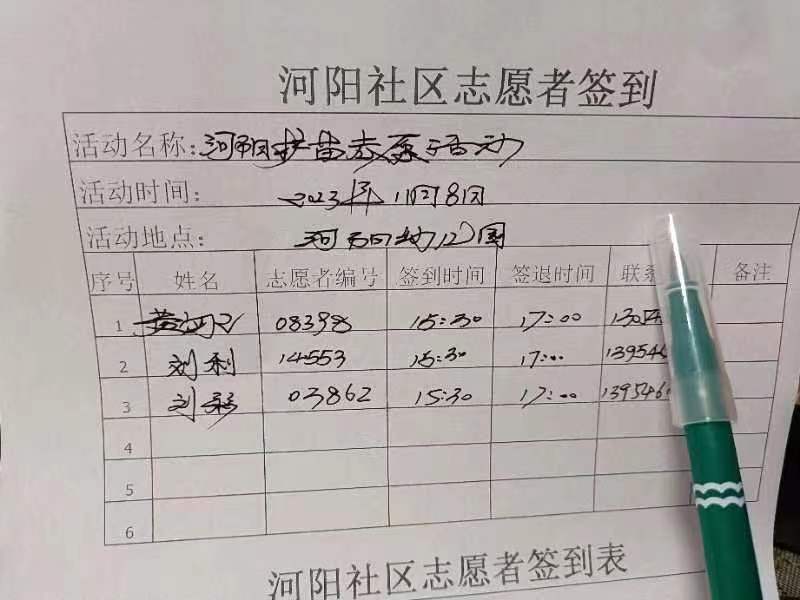 河阳社区志愿者签到
活动名称：河阳护苗志愿活动
活动时间： 2023年11月8日
活动地点： 河阳幼儿园
序号 姓名 志愿者编号 签到时间 签退时间 联系 备注
1 08398 15:30 17:00
2 刘利 14553 15:30 17:00 139546
3 刘 03862 15:30 17:00 139546
4
5
6
河阳社区志愿者签到表